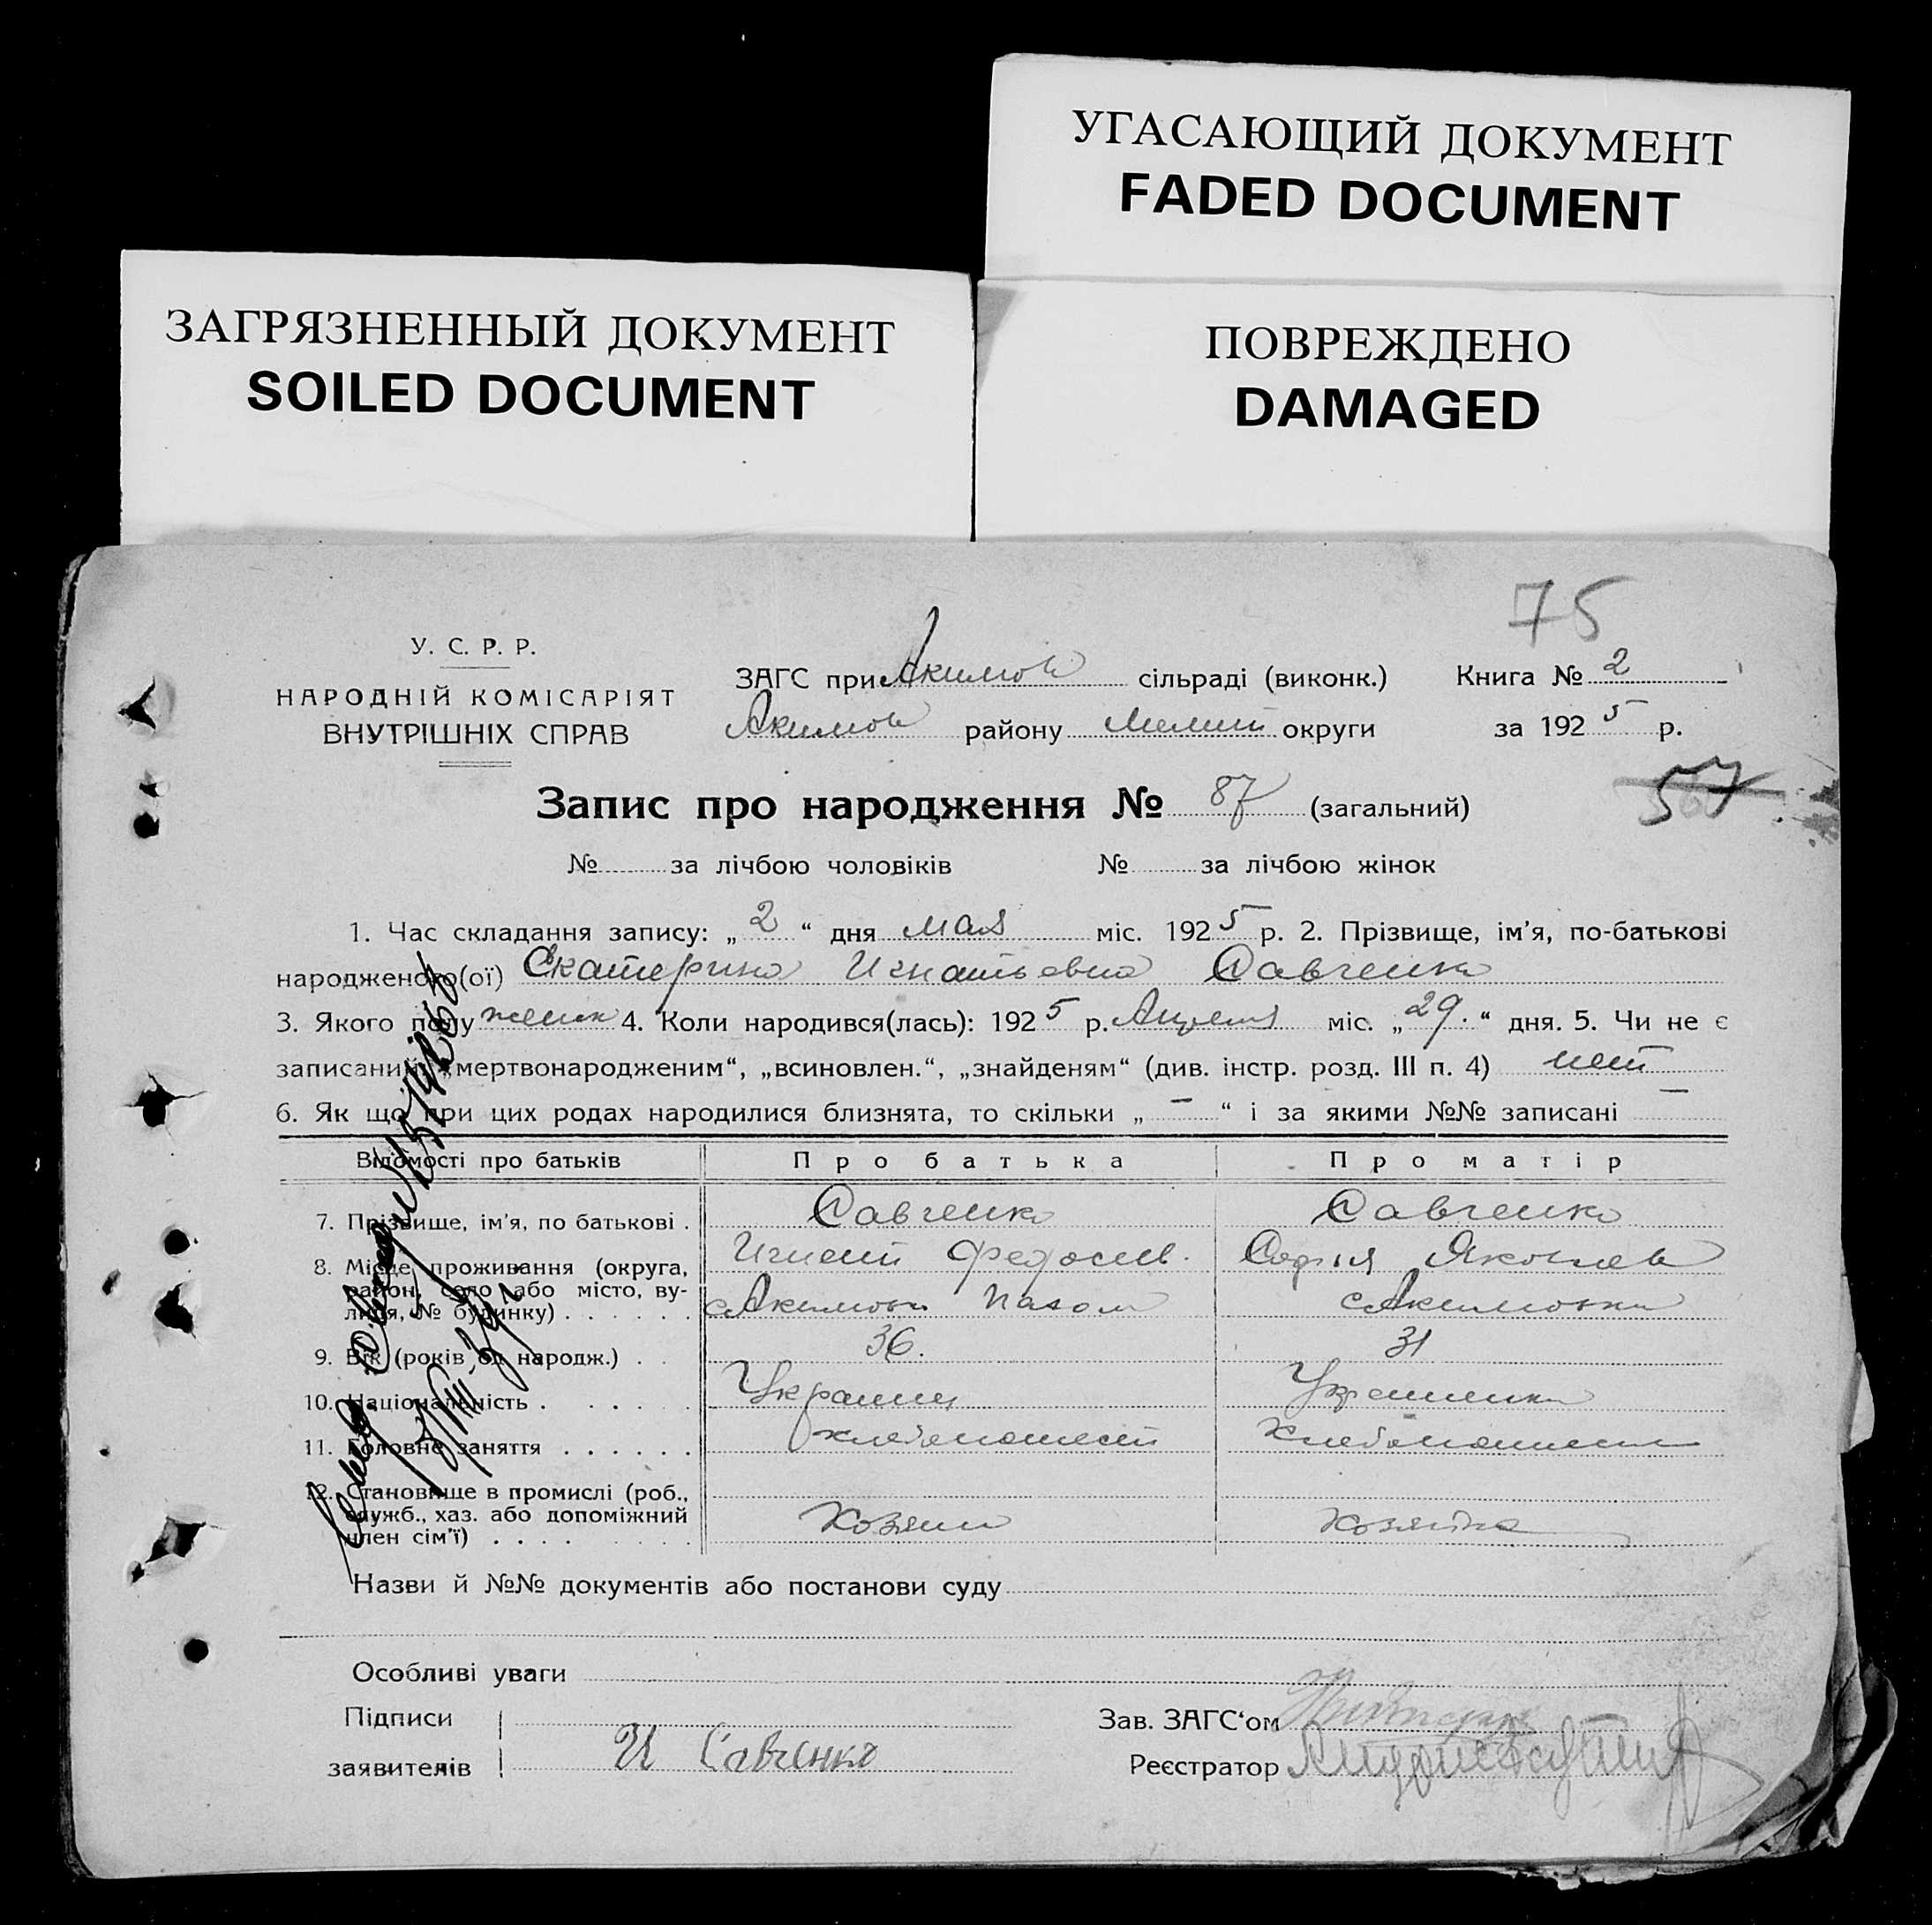 УГАСАЮЩИЙ ДОКУМЕНТ
FADED DOCUMENT
ЗАГРЯЗНЕННЫЙ ДОКУМЕНТ
SOILED DOCUMENT
ПОВРЕЖДЕНО
DAMAGED
75
У. С. Р. Р.
НАРОДНІЙ КОМІСАРІЯТ
ВНУТРІШНІХ СПРАВ
ЗАГС при Акимов сільраді (виконк.) Книга № 2
Акимов району Мелит округи за 1925 р.
57
Запис про народження № 87 (загальний)
№ за лічбою чоловіків № за лічбою жінок
1. Час складання запису: „2“ дня мая міс. 1925 р. 2. Прізвище, ім'я, по-батькові
народженого(ої) Екатерина Игнатьевна Савченко
3. Якого полу женск 4. Коли народився(лась): 1925 р. Апреля міс. „29.“ дня. 5. Чи не є
записаний „мертвонародженим“, „всиновлен.“, „знайденям“ (див. інстр. розд. III п. 4) нет
6. Як що при цих родах народилися близнята, то скільки „ — “ і за якими №№ записані —
Відомості про батьків Про батька Про матір
7. Прізвище, ім'я, по батькові . Савченко Савченко
Игнат Федосеев. София Яковлев
8. Місце проживання (округа, район, село або місто, вулиця, № будинку) . . . . . . с Акимовка с Акимовка
9. Вік (років од народж.) . . 36. 31
10. Національність . . . . . Украинец Украинка
11. Головне заняття . . . . . . хлебопашест Хлебопашест
12. Становище в промислі (роб.,
служб., хаз. або допоміжний
член сім'ї) . . . . . . . . Хозяин Хозяйка
Назви й №№ документів або постанови суду
Особливі уваги
Підписи
заявителів И Савченко
Зав. ЗАГС'ом
Реєстратор